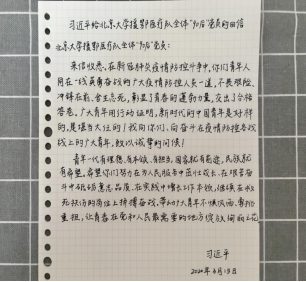 习近平给北京大学援鄂医疗队全体“90后”党员的回信
北京大学援鄂医疗队全体“90后”党员：
来信收悉。在新冠肺炎疫情防控斗争中，你们青年人
同在一线英勇奋战的广大疫情防控人员一道，不畏艰险、
冲锋在前、舍生忘死，彰显了青春的蓬勃力量，交出了合格
答卷。广大青年用行动证明，新时代的中国青年是好样
的，是堪当大任的！我向你们、向奋斗在疫情防控各条战
线上的广大青年，致以诚挚的问候！
青年一代有理想、有本领、有担当，国家就有前途，民族就
有希望。希望你们努力在为人民服务中茁壮成长、在艰苦奋
斗中砥砺意志品质、在实践中增长工作本领，继续在救死
扶伤的岗位上拼搏奋战，带动广大青年不惧风雨、勇挑
重担，让青春在党和人民最需要的地方绽放绚丽之花。
习近平
2020年3月15日